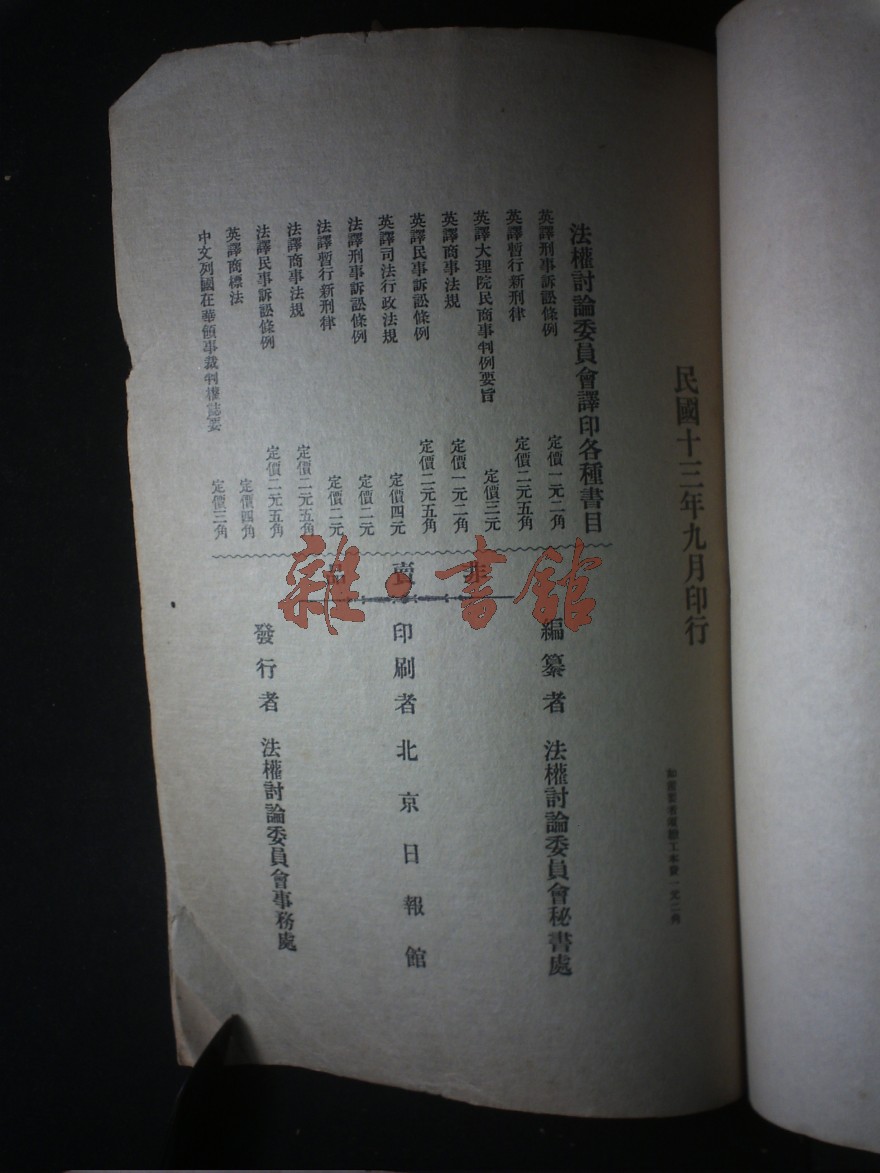 民國十三年九月印行
法權討論委員會譯印各種書目
英譯刑事訴訟條例 定價一元二角
英譯暫行新刑律 定價二元五角
英譯大理院民商事判例要旨 定價三元
英譯商事法規 定價一元二角
英譯民事訴訟條例 定價二元五角
英譯司法行政法規 定價四元
法譯刑事訴訟條例 定價二元
法譯暫行新刑律 定價二元
法譯商事法規 定價二元五角
法譯民事訴訟條例 定價二元五角
英譯商標法 定價四角
中文列國在華領事裁判權誌要 定價三角
非賣品
編纂者 法權討論委員會秘書處
印刷者 北京日報館
發行者 法權討論委員會事務處
雜·書館